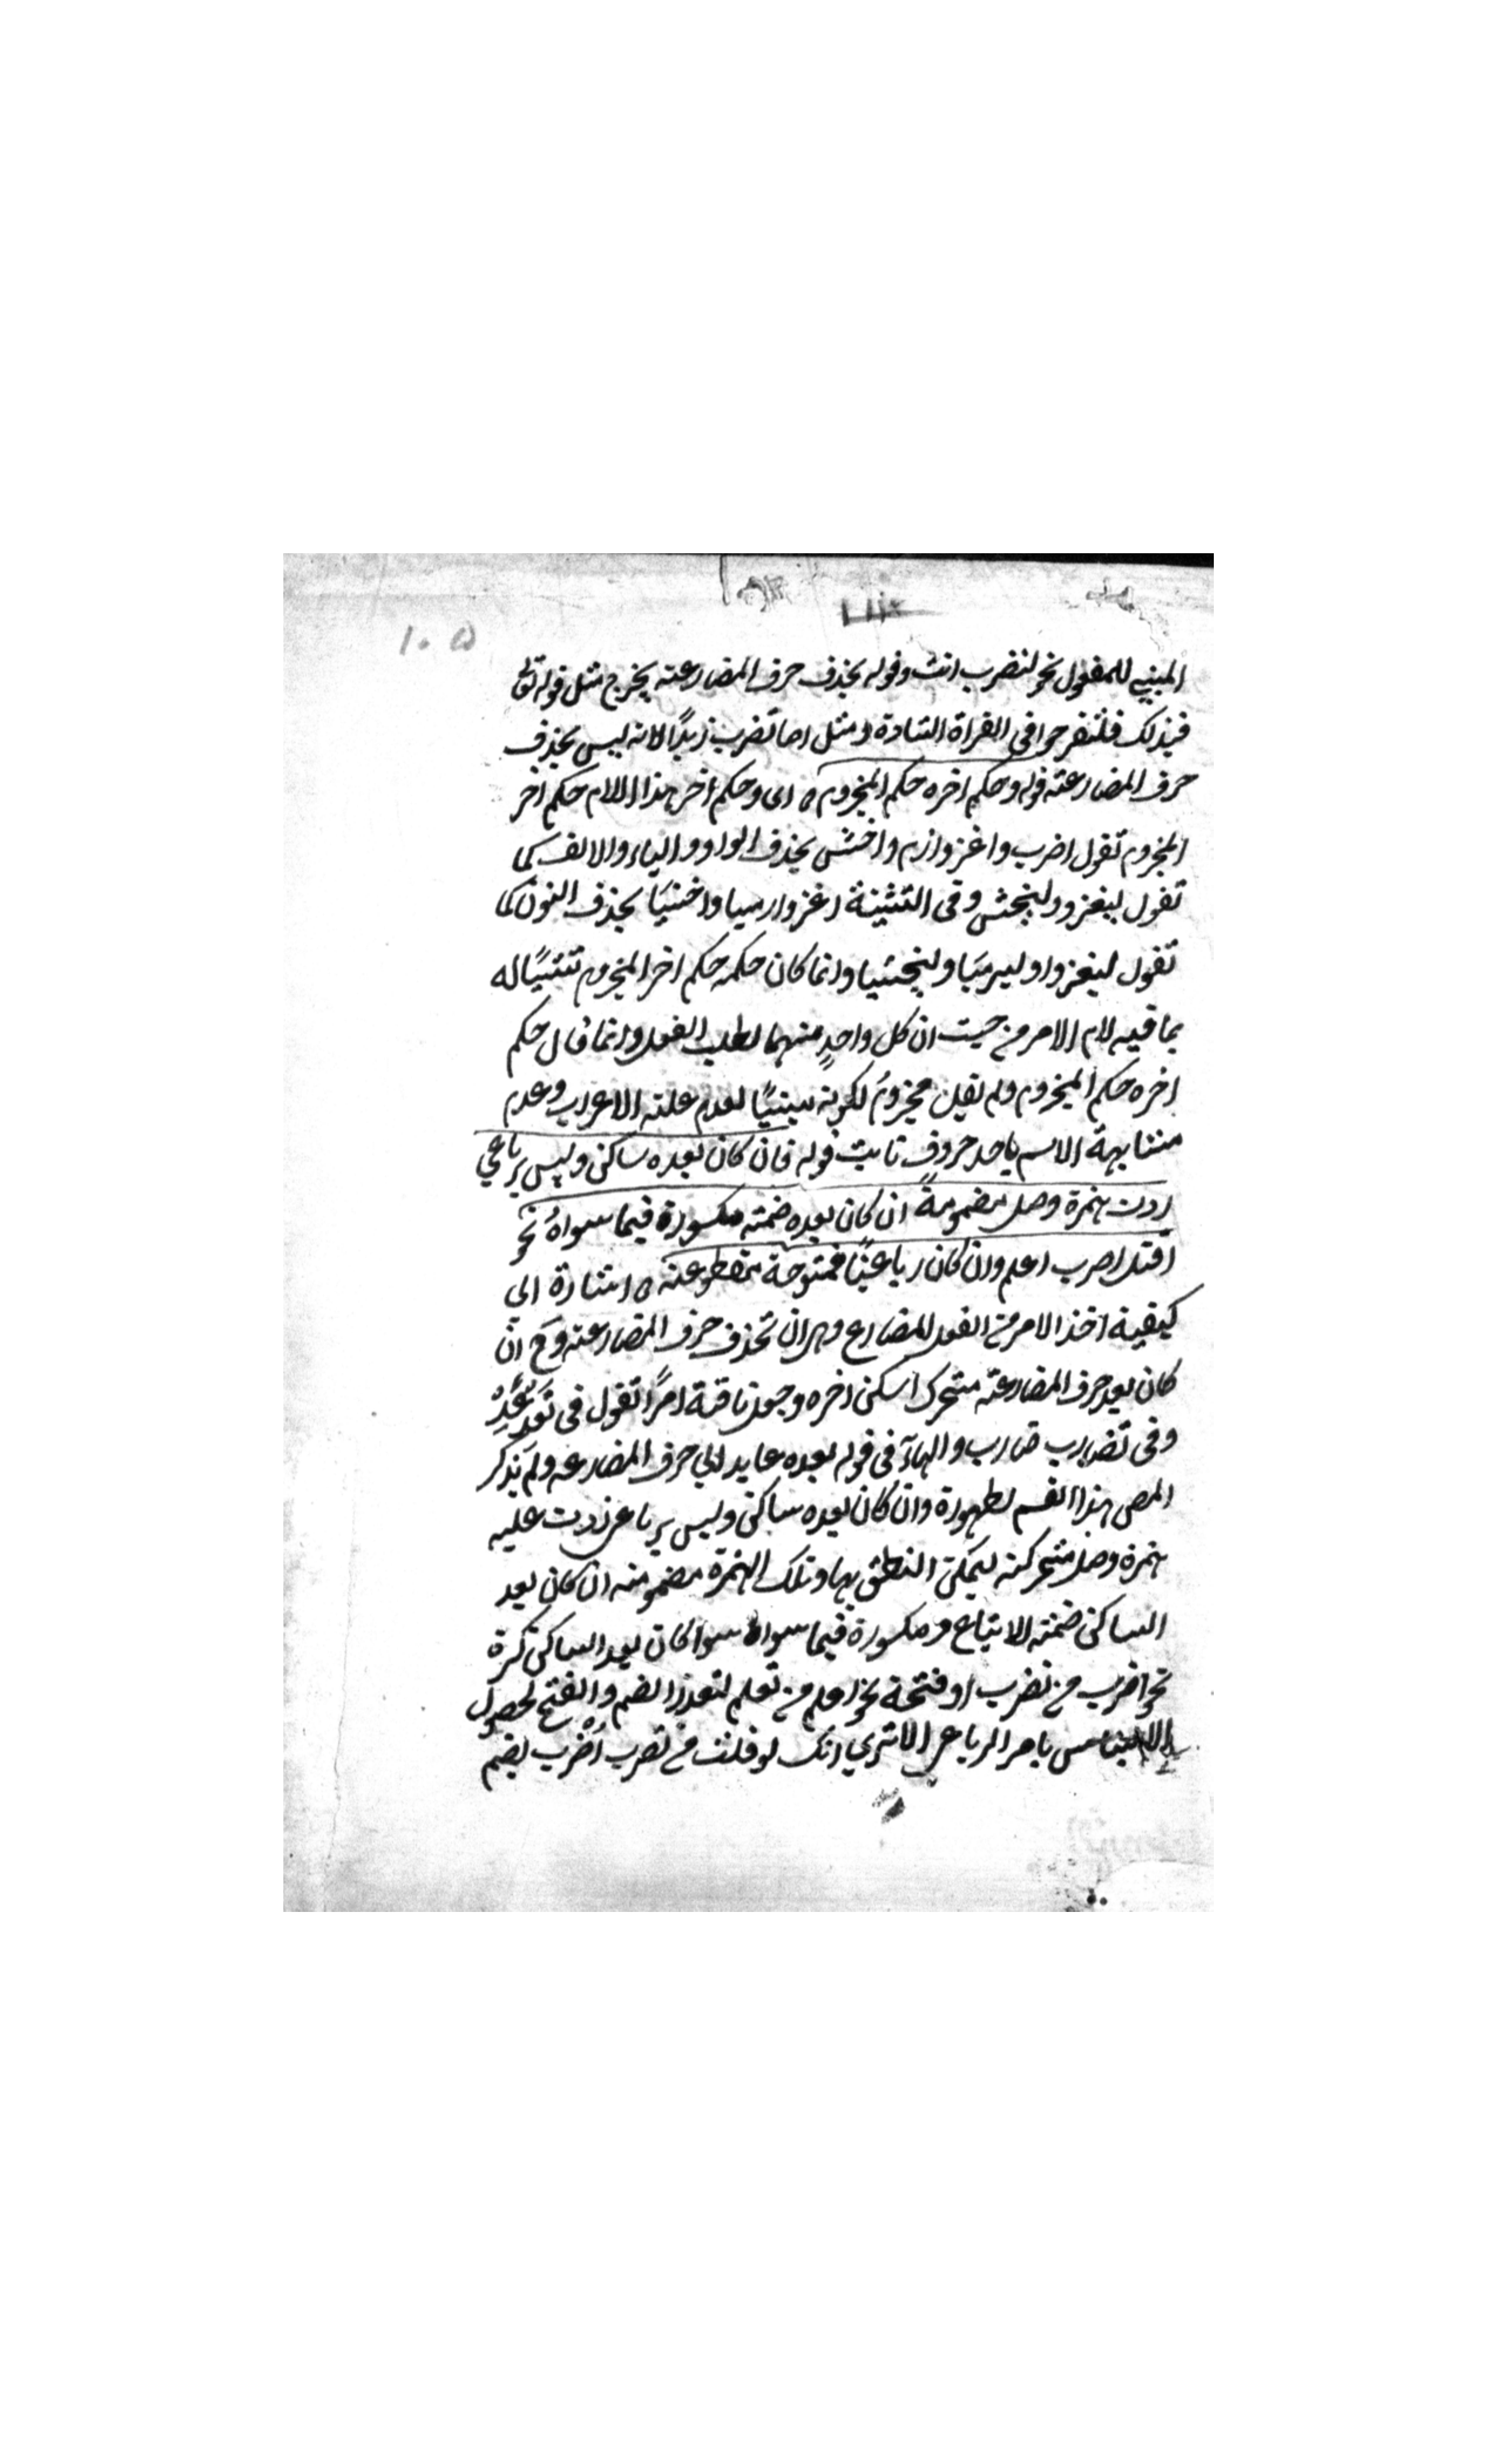 ١٠٥
المبني للمفعول نحو لتضرب انت وقوله بحذف حرف المضارعة يخرج مثل قوله تعالى
فبذلك فلتفرحوا في القراة الشاذة ومثل اما تضرب زيدًا لانه ليس بحذف
حرف المضارعة قوله وحكم اخره حكم المجزوم ه اى وحكم اخر هذا اللام حكم اخر
المجزوم تقول اضرب واغز وارم واخش بحذف الواو والياء والالف كما
تقول ليغز وليخش وفى التثنية اغزوا ارميا واخشيا بحذف النون كما
تقول ليغزوا وليرميَا وليخشيا وانما كان حكمه حكم اخر المجزوم تشبيًاله
بما فيه لام الامر من حيث ان كل واحدٍ منهما لطلب الفعل وانما قال حكم
اخره حكم المجزوم ولم يقل مجزومُ لكونه مبنيًا لعدم علة الاعراب وعدم
مشابهة الاسم باحد حروف نايت قوله فان كان بعده ساكن وليس برباعي
زدت همزة وصل مضمومةً ان كان بعده ضمة مكسورة فيما سواهُ نحو
اقتل اضرب اعلم وان كان رباعيًا فمفتوحة مقطوعة ه اشارة الى
كيفية اخذ الامر من الفعل المضارع وهو ان تحذف حرف المضارعة وح ان
كان بعد حرف المضارعة متحرك اسكن اخره وجعل باقية امرًا تقول فى تَعِد عِدْ
وفى تضارب ضارب والهآء فى قوله بعده عايد الى حرف المضارعه ولم يذكر
المص هذا القسم لظهورة وان كان بعده ساكن وليس برباعى زدت عليه
همزة وصل متحركة ليمكن النطق بها وتلك الهمزة مضمومة ان كان بعد
الساكن ضمة للاتباع ومكسورة فيما سواه سوا كان بعد الساكن كسرة
نحو اضرب من تضرب او فتحة نحو اعلم من تعلم لتعذر الضم والفتح لحصول
الالتباس بامر الرباعى الا ترى انك لو قلت من تضرب اُضرب بضم